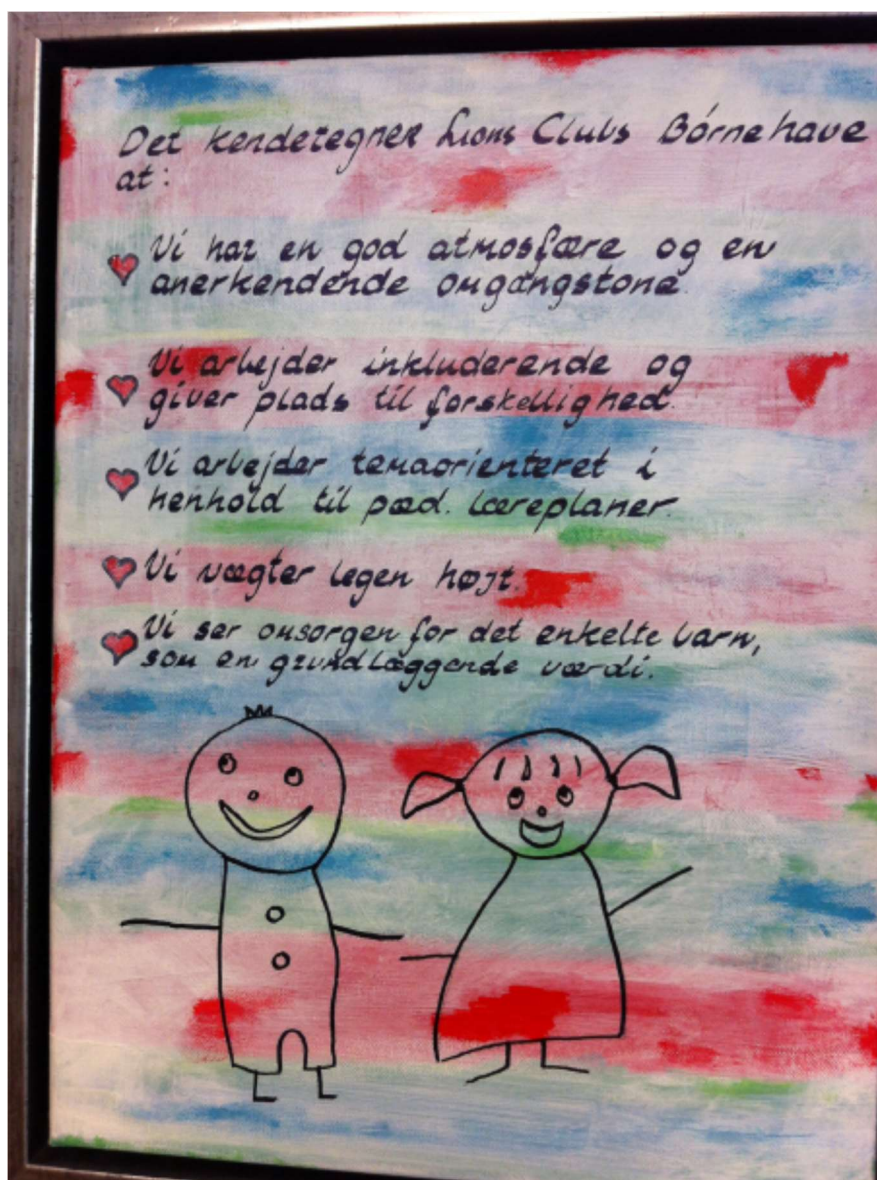 Det kendetegner Lions Clubs Børnehave
at:
Vi har en god atmosfære og en
anerkendende omgangstone.
Vi arbejder inkluderende og
giver plads til forskellighed.
Vi arbejder temaorienteret i
henhold til pæd. læreplaner.
Vi vægter legen højt.
Vi ser omsorgen for det enkelte barn,
som en grundlæggende værdi.